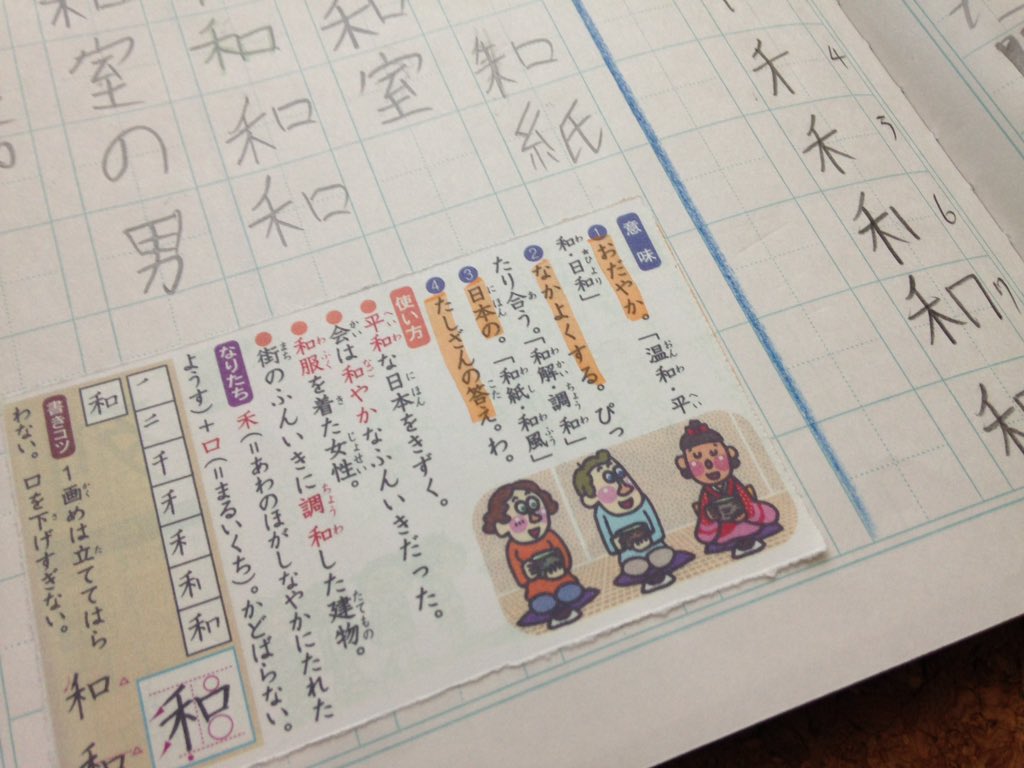 4
禾
6
7
和紙
和室
和和和
室の男
意味
①おだやか。「温和・平
和・日和」
②なかよくする。ぴっ
たり合う。「和解・調和」
③日本の。「和紙・和風」
④たしざんの答え。わ。
使い方
●平和な日本をきずく。
●会は和やかなふんいきだった。
●和服を着た女性。
●街のふんいきに調和した建物。
なりたち 禾(=あわのほがしなやかにたれた
ようす)+口(=まるいくち)。かどばらない。
和
書きコツ 1画めは立ててはら
わない。口を下げすぎない。
和
和